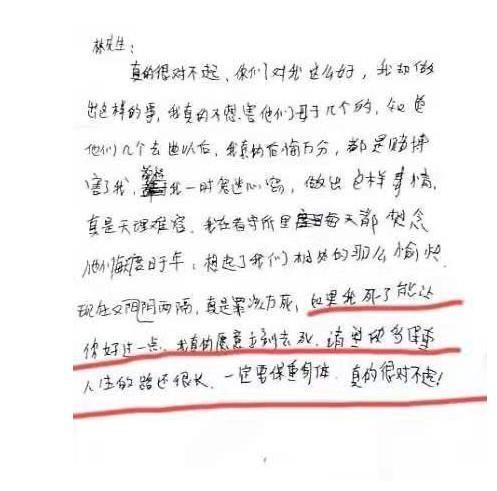 林先生:
真的很对不起、你们对我这么好，我却做
出这样的事，我真的不想害他们母子几个的，知道
他们几个去世以后，我真的后悔万分，都是赌博
害了我，我一时鬼迷心窍，做出这样事情，
真是天理难容。我在看守所里每天都想念
他们度日于年，想起了我们相处的那么愉快
现在又阴阳两隔，真是罪该万死，如果我死了能让
你好过一点，我真的愿意立刻去死，请您多保重
人生的路还很长，一定要保重身体，真的很对不起！